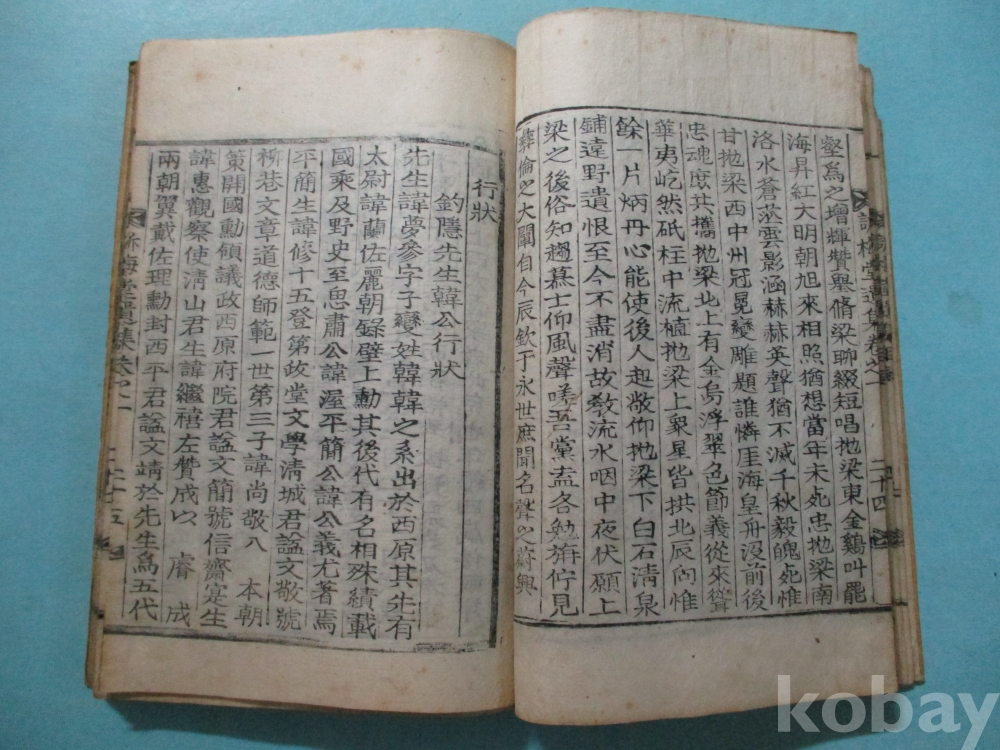 壑爲之增輝贊擧脩梁聊綴短唱抛梁東金鷄叫罷
海昇紅大明朝旭來相照猶想當年未死忠抛梁南
洛水蒼茫雲影涵赫赫英聲猶不滅千秋毅魄死惟
甘抛梁西中州冠冕變雕題誰憐厓海皇舟沒前後
忠魂庶共携抛梁北上有金烏浮翠色節義從來聳
華夷屹然砥柱中流植抛梁上衆星皆拱北辰向惟
餘一片炳丹心能使後人起敬仰抛梁下白石淸泉
鋪遠野遺恨至今不盡消故敎流水咽中夜伏願上
梁之後俗知趨慕士仰風聲嗟吾黨盍各勉旃佇見
彝倫之大闡自今辰欽于永世庶聞名聲之蔚興
行狀
釣隱先生韓公行狀
先生諱夢參字子變姓韓韓之系出於西原其先有
太尉諱蘭佐麗朝錄壁上勳其後代有名相殊績載
國乘及野史至思肅公諱渥平簡公諱公義尤著焉
平簡生諱修十五登第政堂文學淸城君諡文敬號
柳巷文章道德師範一世第三子諱尚敬入 本朝
策開國勳領議政西原府院君諡文簡號信齋寔生
諱惠觀察使淸山君生諱繼禧左贊成以 睿 成
兩朝翼戴佐理勳封西平君諡文靖於先生爲五代
二十四
二十五
kobay